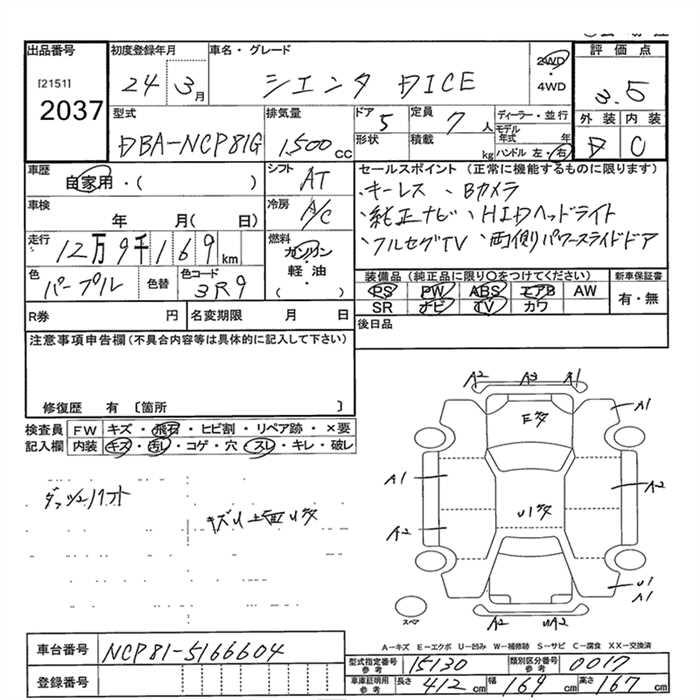 出品番号
[2151]
2037
初度登録年月
24 3月
車名・グレード
シエンタ DICE
2WD
・
4WD
評価点
3.5
外装 内装
D C
型式
DBA-NCP81G
排気量
1,500 cc
ドア 5
形状
定員 7人
積載 kg
ディーラー・並行
モデル年式 年
ハンドル 左・右
車歴
自家用・( )
シフト AT
車検
年 月( 日)
冷房 A/C
走行
12万9千169 km
燃料
ガソリン
軽・油
( )
色 パープル
色替
色コード 3R9
セールスポイント (正常に機能するものに限ります)
・キーレス ・Bカメラ
・純正ナビ ・HIDヘッドライト
・フルセグTV ・両側パワースライドドア
装備品(純正品に限り○をつけてください)
PS PW ABS エアB AW
SR ナビ TV カワ
新車保証書
有・無
R券 円
名変期限 月 日
後日品
注意事項申告欄(不具合内容等は具体的に記入して下さい)
修復歴 有 〔箇所 〕
検査員 FW キズ・飛石・ヒビ割・リペア跡・×要
記入欄 内装 キズ・汚レ・コゲ・穴・スレ・キレ・破レ
キズU上面U多
A2 A3 A1
A1
E多
A1
A2
U多
A2
U1
A1
U2
A2 UA2
スペア
A-キズ E-エクボ U-凹み W-補修跡 S-サビ C-腐食 XX-交換済
車台番号 NCP81-5166604
登録番号
型式指定番号 参考 15130
類別区分番号 参考 0017
車庫証明用 参考 長さ 412 cm 幅 169 cm 高さ 167 cm